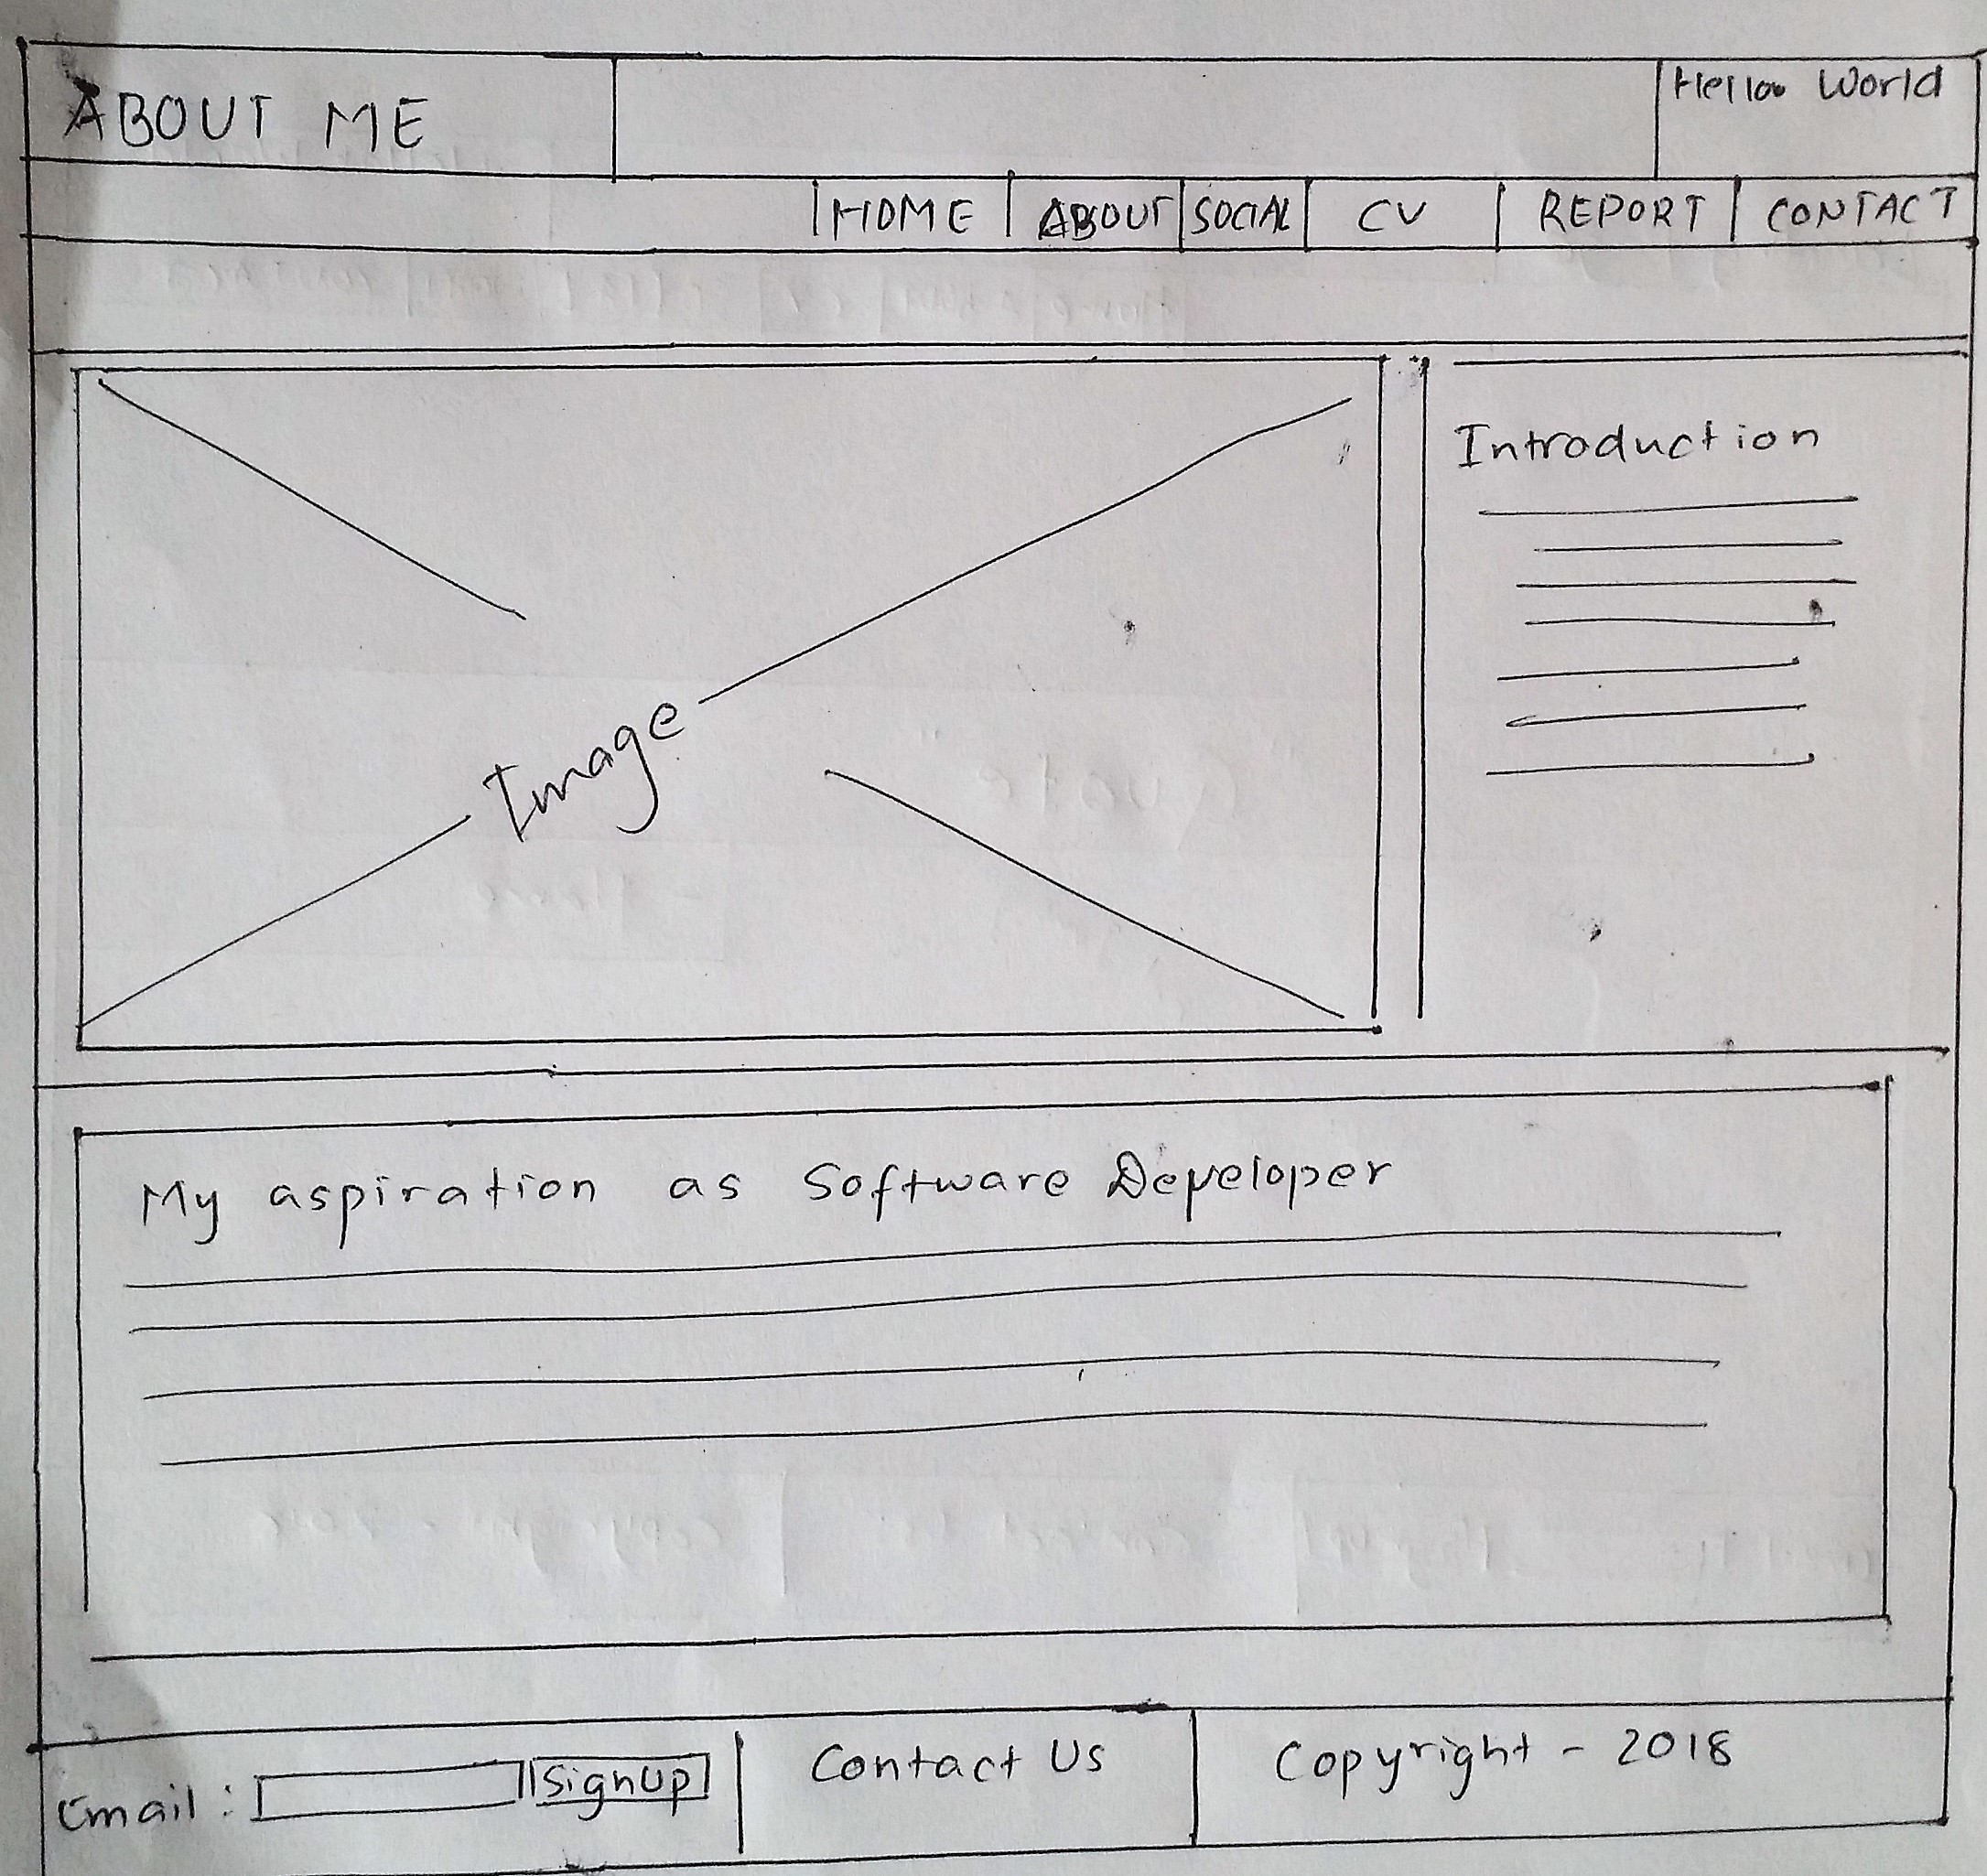 ABOUT ME
Hello World
HOME ABOUT SOCIAL CV REPORT CONTACT
Introduction
Image
My aspiration as Software Developer
Email: SignUp
Contact Us
Copyright - 2018